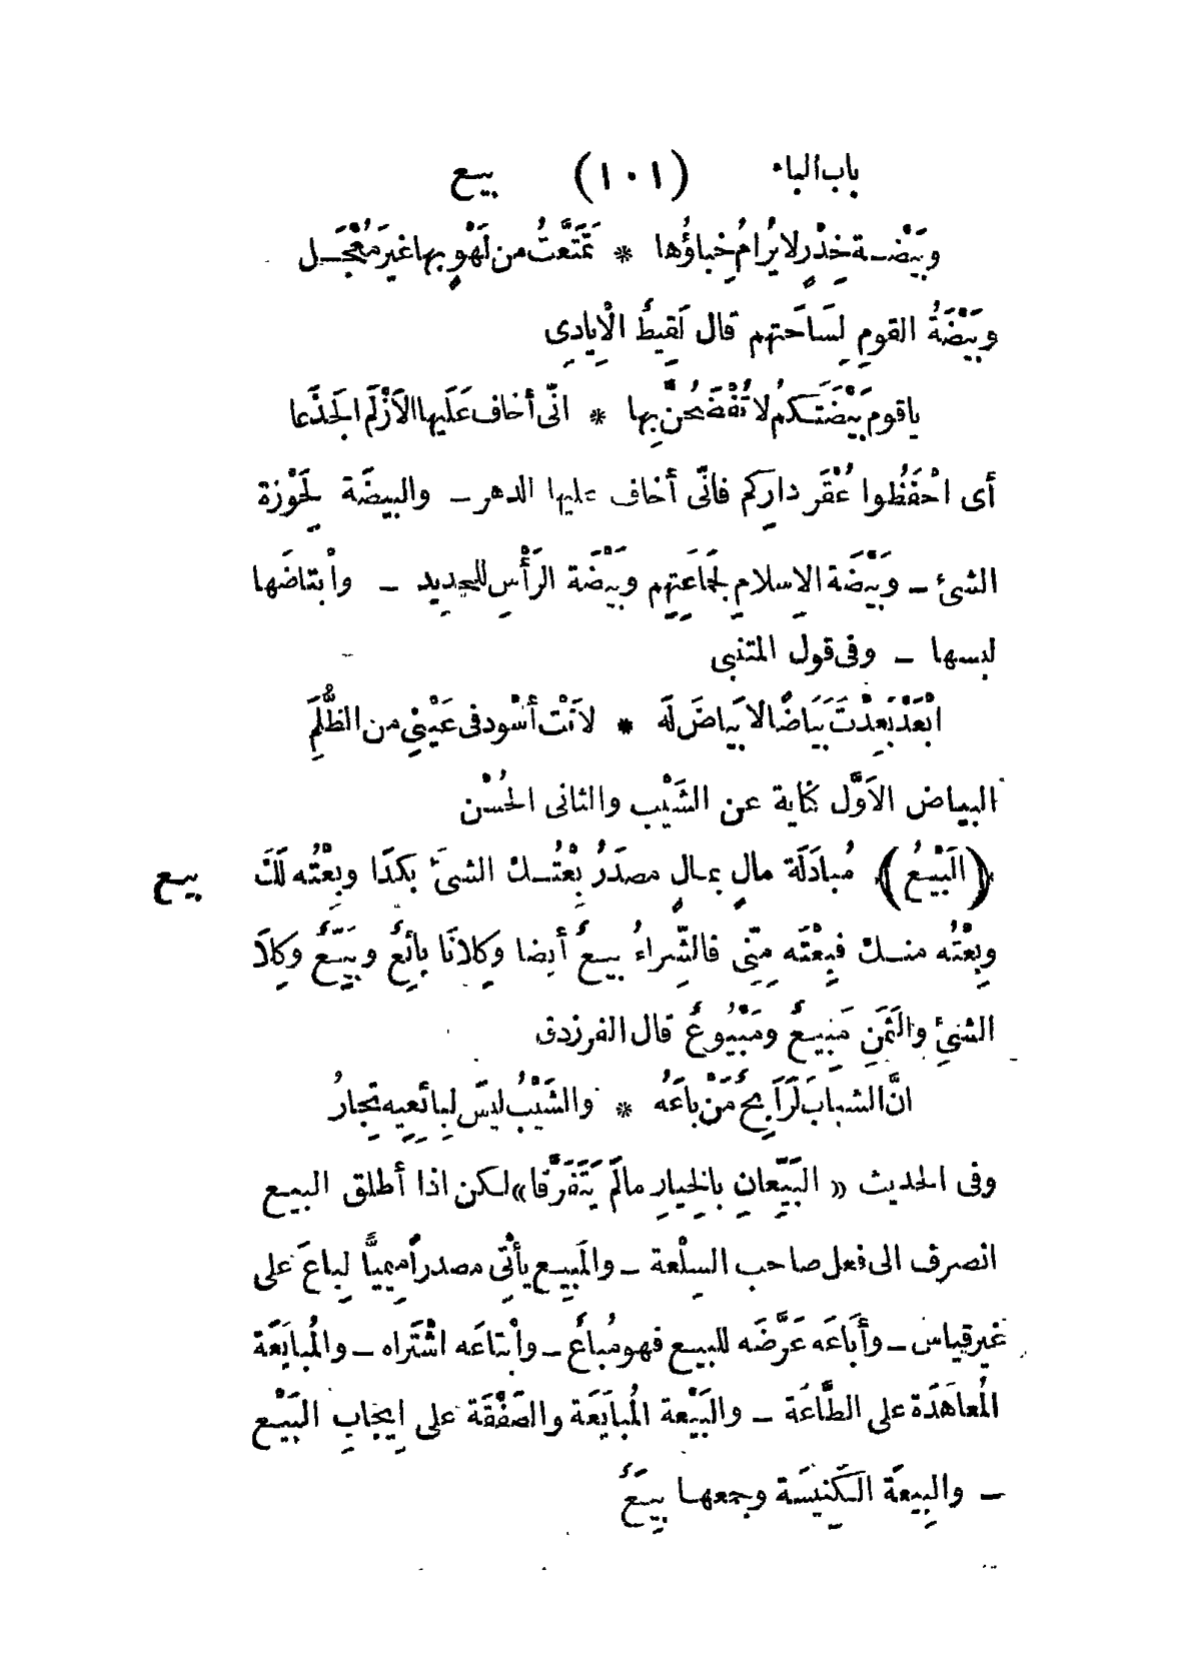 باب الباء (١٠١) بيع
وبَيْضـة خِدْرٍ لا يُرامُ خِباؤُها * تَمَتَّعتُ من لَهْوٍ بها غيرَ مُعْجَـل
وبَيْضَةُ القومِ لِسَاحَتهم قال لَقِيطُ الْإيادِى
ياقوم بَيْضَتَـكمُ لا تُفْضَحُنَّ بِها * انّى أخاف عَلَيها الأَزْلَم الجَذَعا
أى احْفَظُوا عُقْر دارِكم فانّى أخاف عليها الدهر ــ والبيضَة لِحَوْزة
الشئ ــ وبَيْضَة الاِسلامِ لجَماعَتِهِم وبَيْضَة الرَأْسِ للحدِيدِ ــ وابْتاضَها
لبسها ــ وفى قول المتنبى
ابْعَدْ بَعِدْتَ بَيَاضًا لا بَياضَ لَه * لأَنْت أسْود فى عَيْنِى من الظُّلَمِ
البياض الأَوَّل كناية عن الشَيْب والثانى الحُسْن
(البَيْعُ) مُبادَلَة مالٍ بمـالٍ مصدَرُ بِعْتُـك الشئَ بكذَا وبِعْتُه لَكَ بيع
وبِعْتُه منـك فبِعْتَه مِنِّى فالشِّراءُ بيـعٌ أيضا وكِلانَا بائِعٌ وبَيِّعٌ وكِلَا
الشئِ والثَمَنِ مَبِيـعٌ ومَبْيُوعٌ قال الفرزدق
انَّ الشبابَ لَرَابِحٌ مَنْ باعَهُ * والشَيْبُ ليسَ لِبائِعِيه تِجارُ
وفى الحديث « البَيِّعانِ بالخِيارِ مالَم يَتَفَرَّقا» لكن اذا أطلق البيـع
انصرف الى فعل صاحب السِلْعة ــ والمَبِيـع يأتِى مصدراً مِيميًّا لِباعَ على
غيرقياس ــ وأَبَاعَه عَرَّضَه للبيـع فهو مُباعٌ ــ وابْتاعَه اشْتَراه ــ والمُبايَعَة
المُعاهَدَة على الطَّاعَة ــ والبَيْعة المُبايَعَة والصَفْقَة على اِيجابِ البَيْع
ــ والبِيعَة الكَنِيسَة وجمعها بِيَعٌ